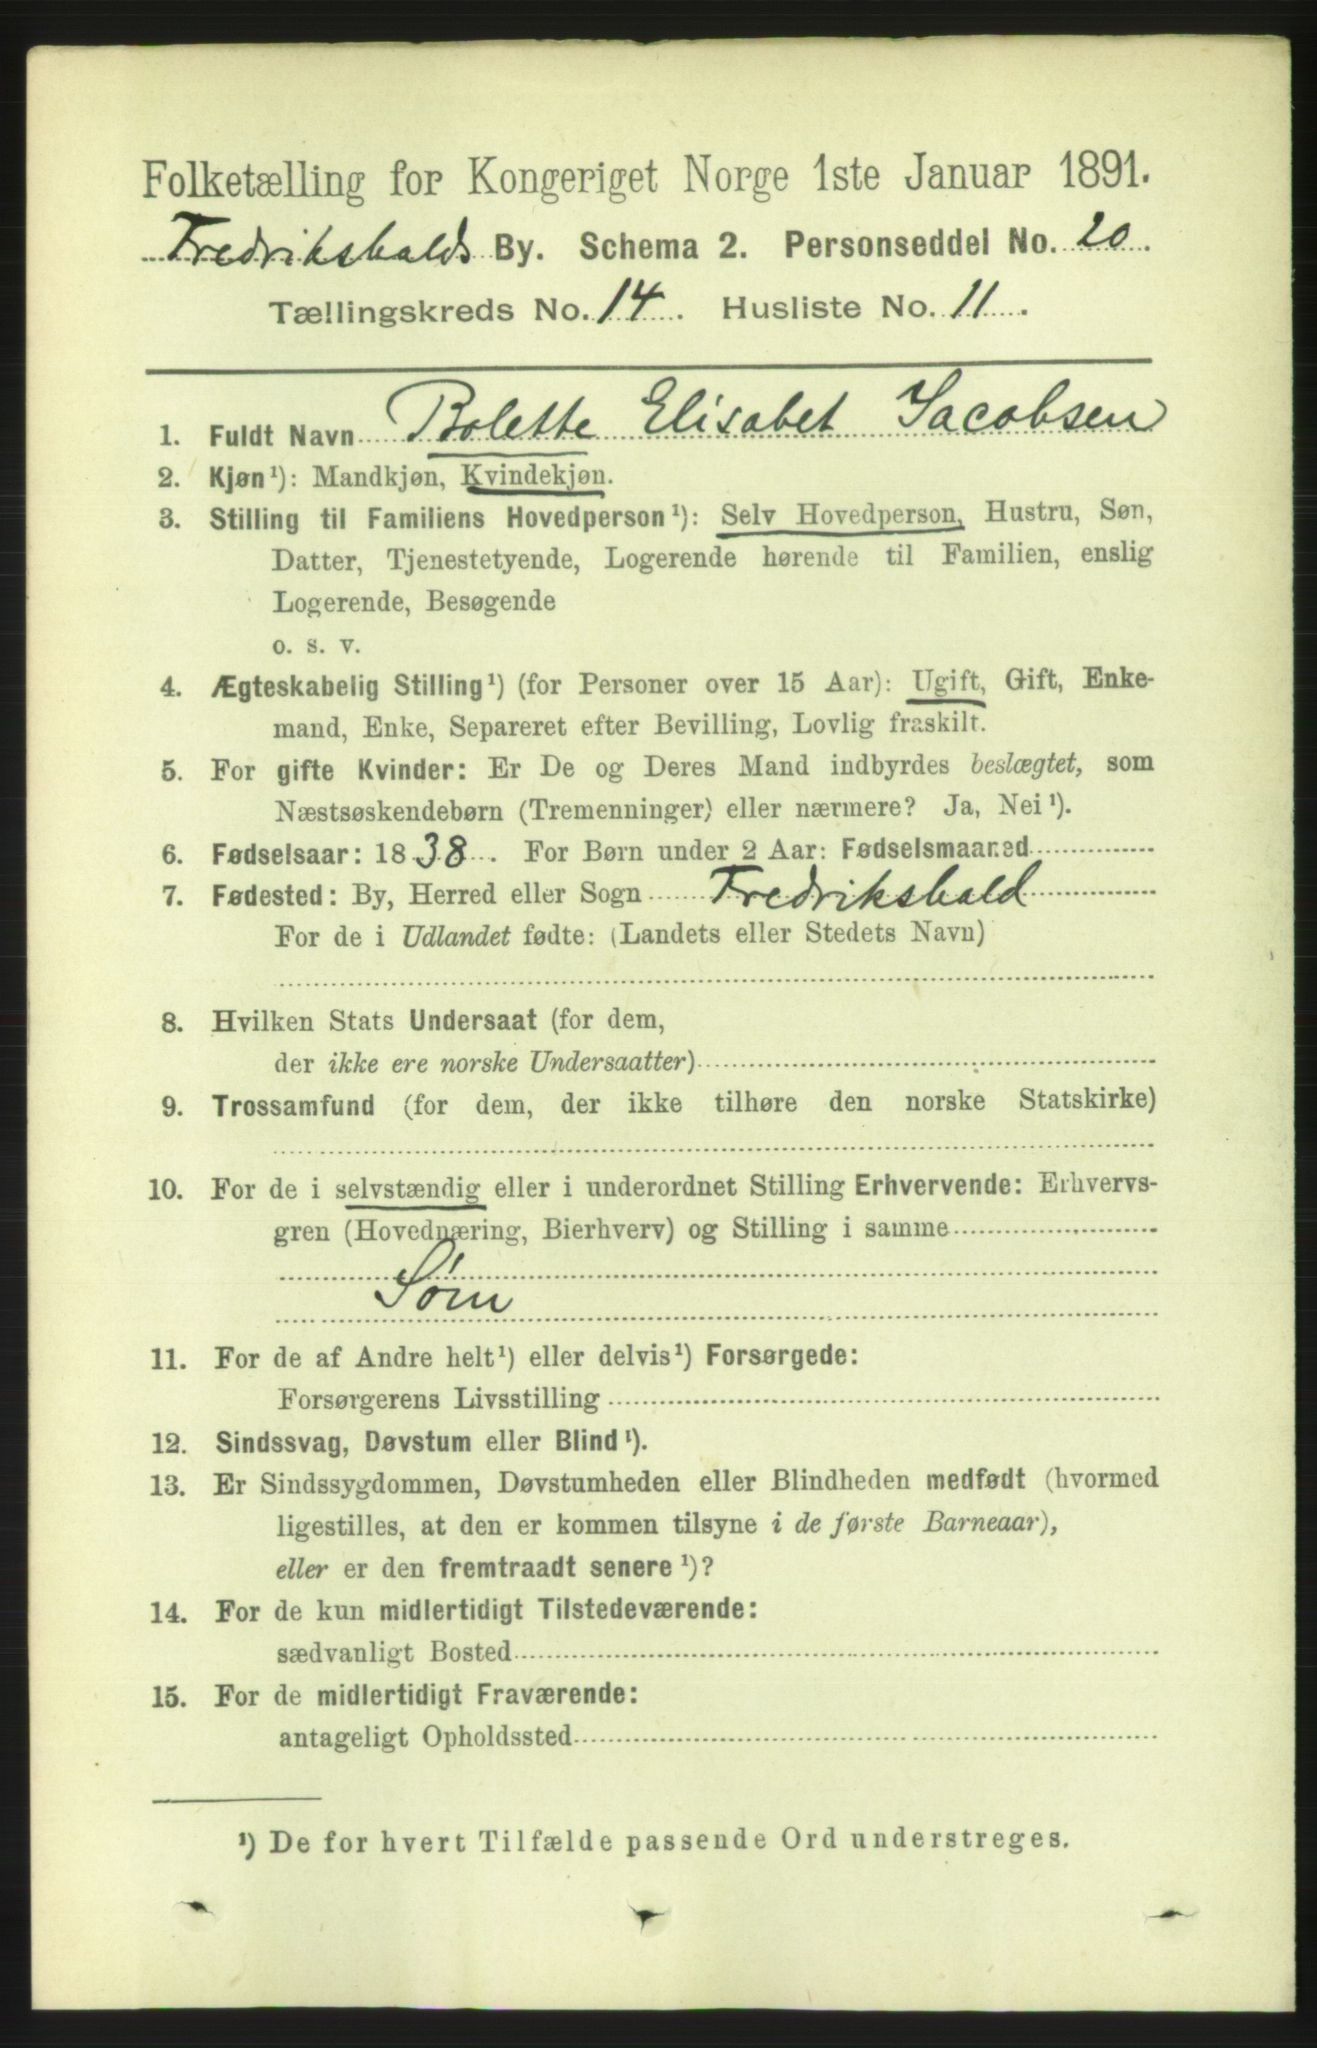 Folketælling for Kongeriget Norge 1ste Januar 1891.
Fredrikshalds By. Schema 2. Personseddel No. 20.
Tællingskreds No. 14. Husliste No. 11.
1. Fuldt Navn Bolette Elisabet Jacobsen
2. Kjøn¹): Mandkjøn, Kvindekjøn.
3. Stilling til Familiens Hovedperson¹): Selv Hovedperson, Hustru, Søn,
Datter, Tjenestetyende, Logerende hørende til Familien, enslig
Logerende, Besøgende
o. s. v.
4. Ægteskabelig Stilling¹) (for Personer over 15 Aar): Ugift, Gift, Enke-
mand, Enke, Separeret efter Bevilling, Lovlig fraskilt.
5. For gifte Kvinder: Er De og Deres Mand indbyrdes beslægtet, som
Næstsøskendebørn (Tremenninger) eller nærmere? Ja, Nei¹).
6. Fødselsaar: 1838. For Børn under 2 Aar: Fødselsmaaned
7. Fødested: By, Herred eller Sogn Fredrikshald
For de i Udlandet fødte: (Landets eller Stedets Navn)
8. Hvilken Stats Undersaat (for dem,
der ikke ere norske Undersaatter)
9. Trossamfund (for dem, der ikke tilhøre den norske Statskirke)
10. For de i selvstændig eller i underordnet Stilling Erhvervende: Erhvervs-
gren (Hovednæring, Bierhverv) og Stilling i samme
Søm
11. For de af Andre helt¹) eller delvis¹) Forsørgede:
Forsørgerens Livsstilling
12. Sindssvag, Døvstum eller Blind¹).
13. Er Sindssygdommen, Døvstumheden eller Blindheden medfødt (hvormed
ligestilles, at den er kommen tilsyne i de første Barneaar),
eller er den fremtraadt senere¹)?
14. For de kun midlertidigt Tilstedeværende:
sædvanligt Bosted
15. For de midlertidigt Fraværende:
antageligt Opholdssted
¹) De for hvert Tilfælde passende Ord understreges.